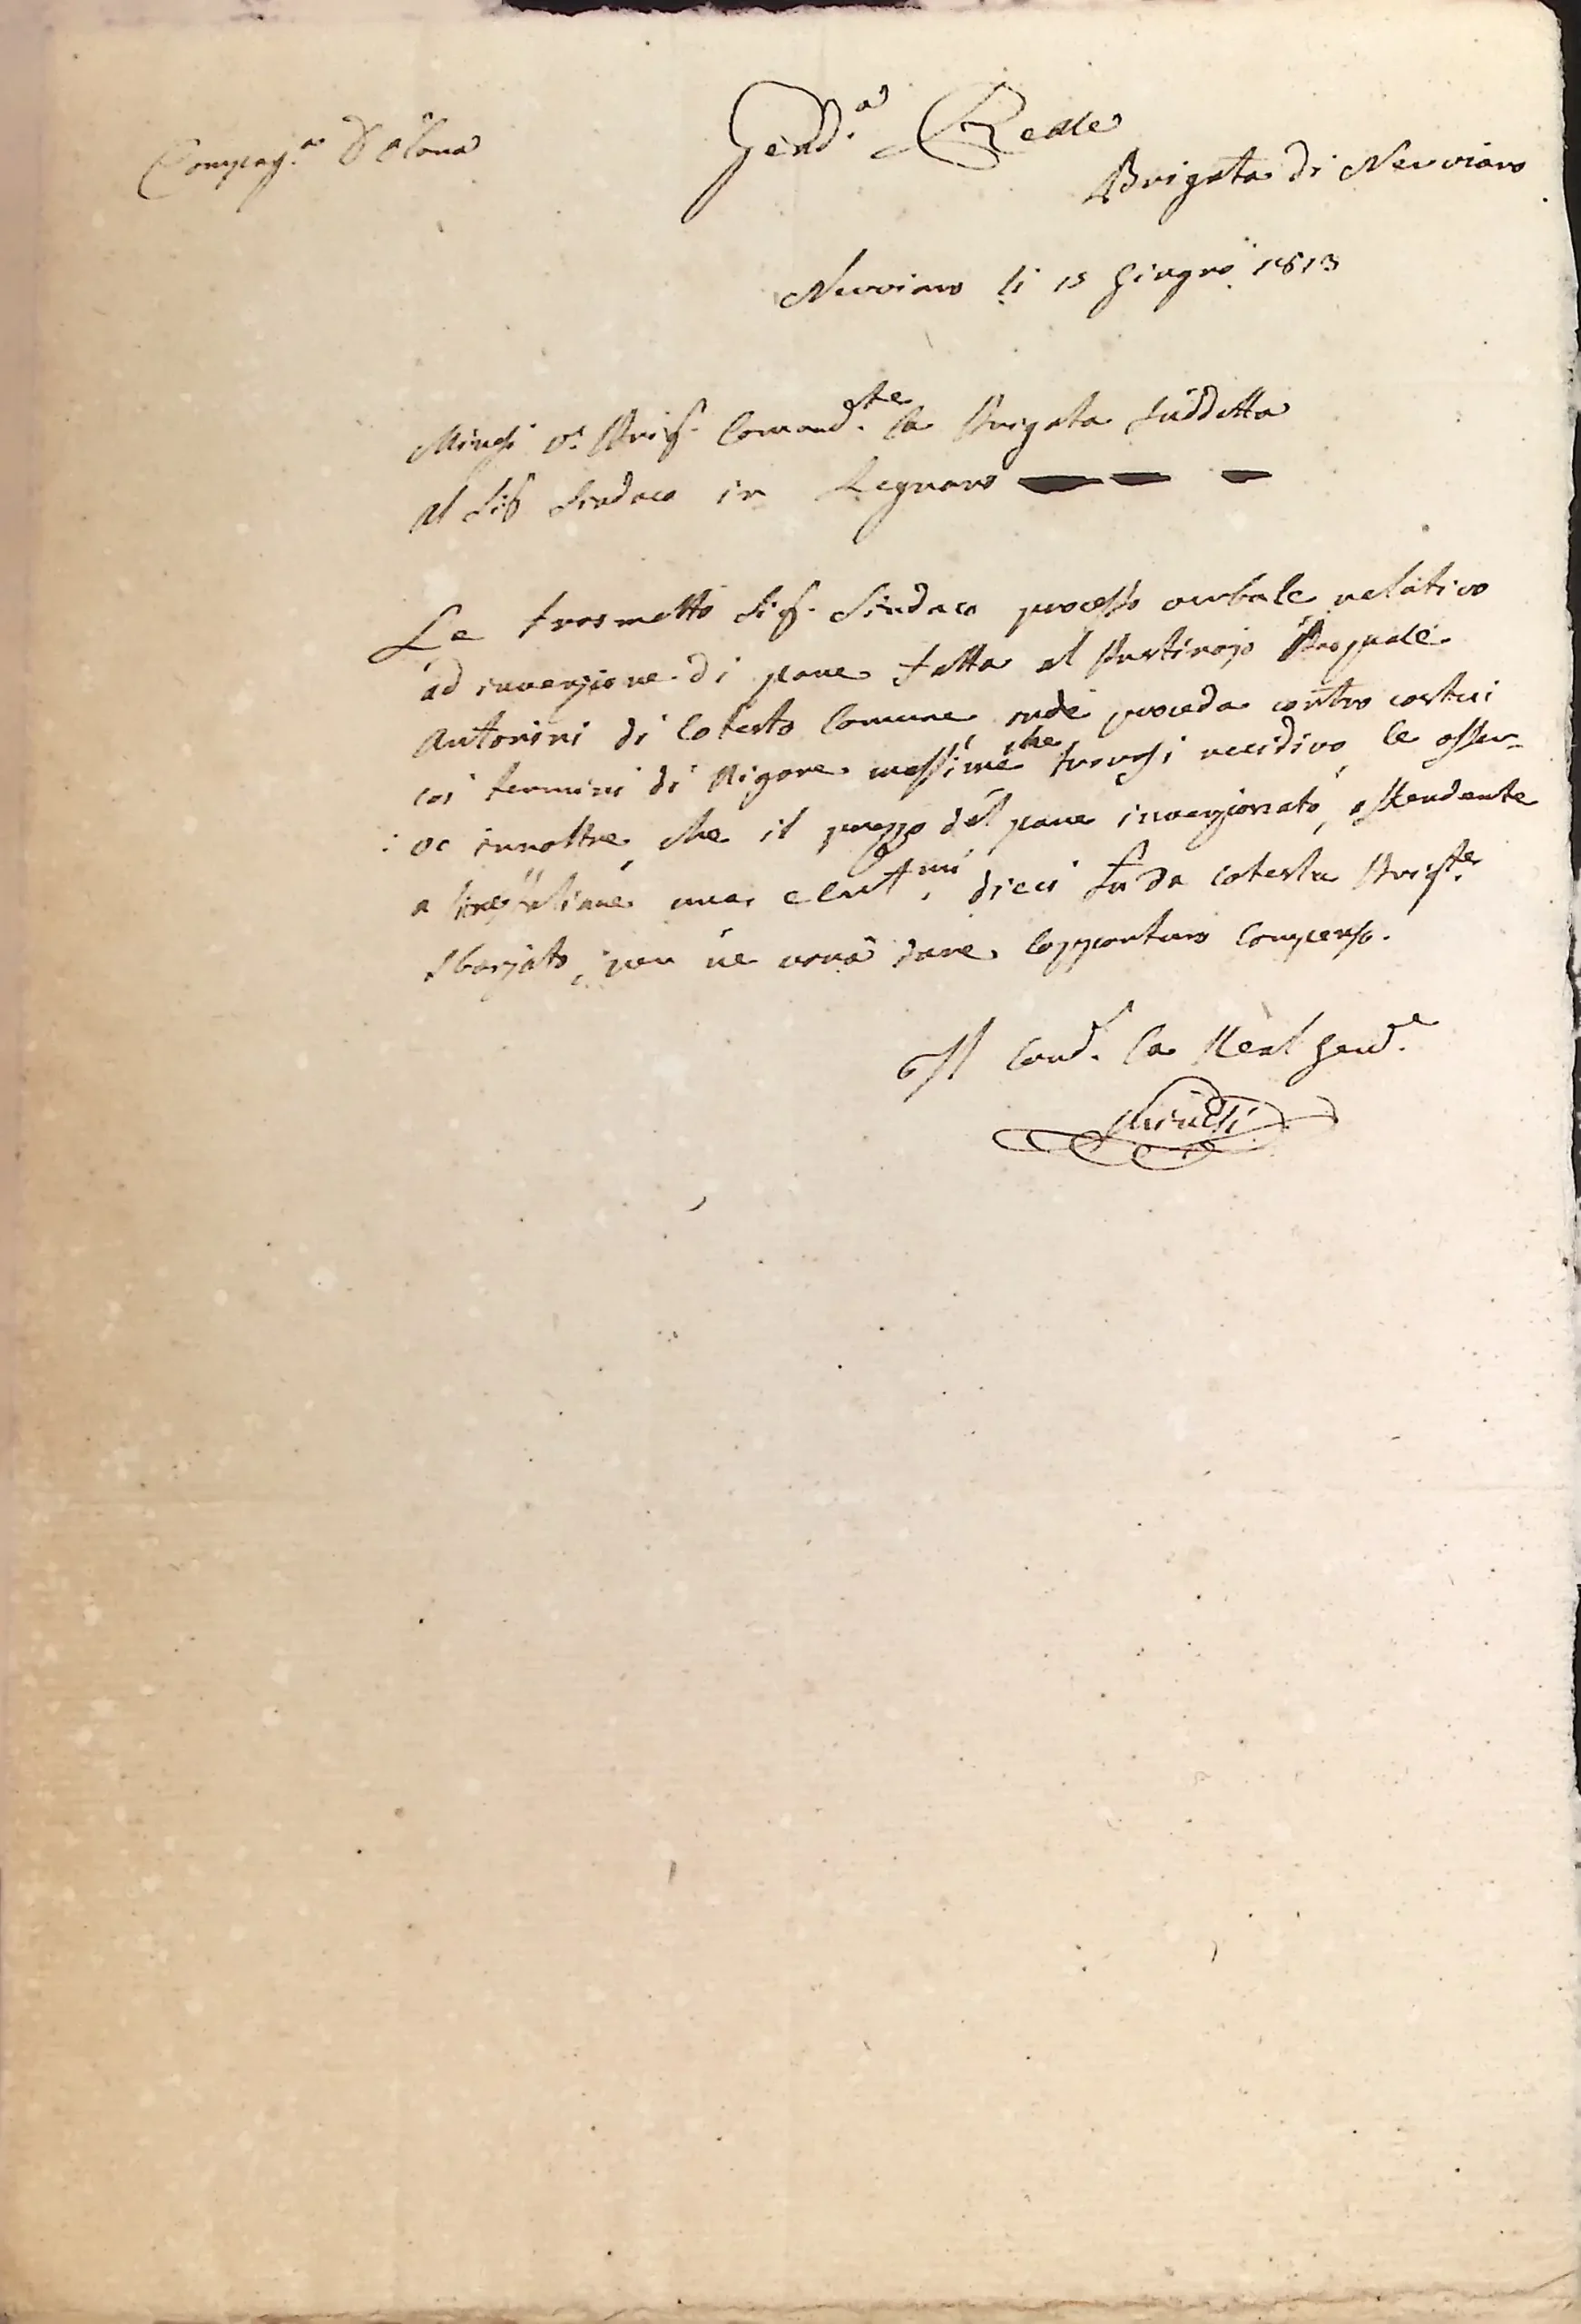 Compag.a d'Olona
Gend.a Reale
Brigata di Nerviano
Nerviano li 15 Giugno 1813
Minesi V. Brig. Comand.te la Brigata suddetta
al Sig Sindaco in Legnano
Le trasmetto Sig. Sindaco processo verbale relativo
ad invenzione di pane fatta al Prestinajo Pasquale
Antonini di cotesto Comune onde proceda contro costui
coi termini di Rigore massime che trovasi recidivo, le osser-
: vo innoltre, che il prezzo del pane invenzionato, assendente
a lire italiane una, e cent.mi dieci fu da cotesta Brig.te
sborsato, per ne vorrà dare l'opportuno compenso.
Il Comd. la Real Gend.e
Minesi